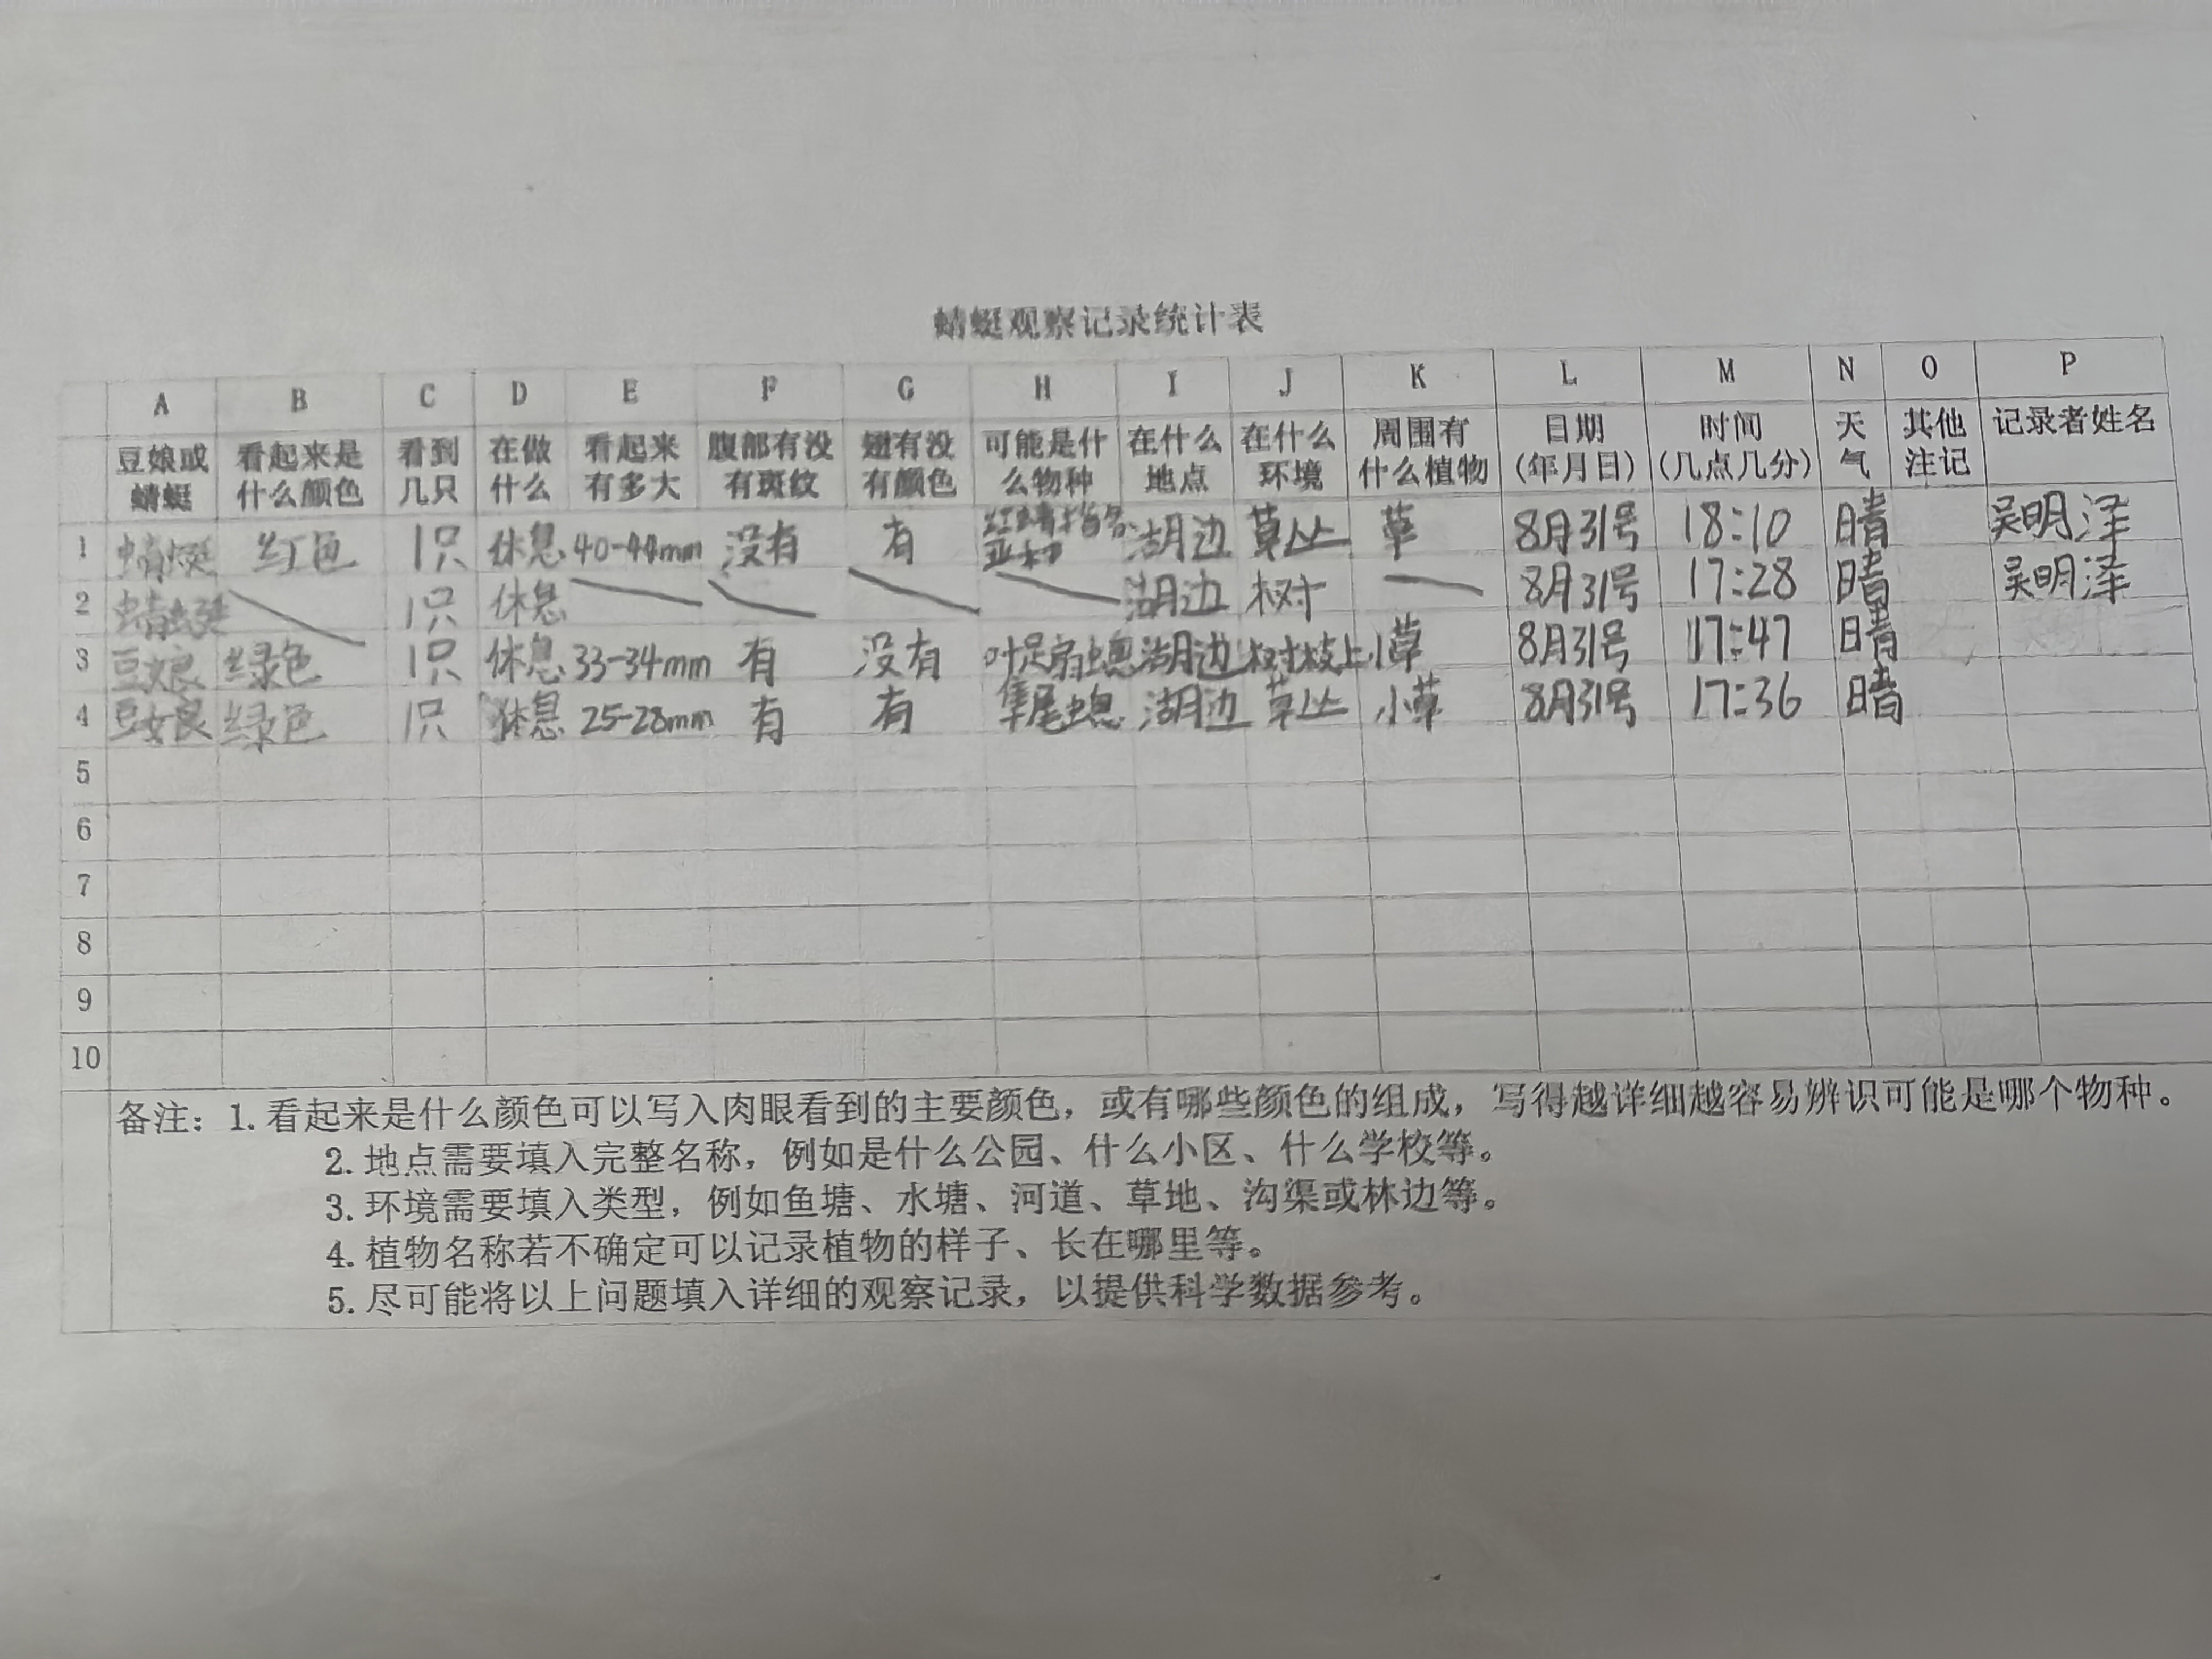 蜻蜓观察记录统计表
A B C D E F G H I J K L M N O P
豆娘或蜻蜓 看起来是什么颜色 看到几只 在做什么 看起来有多大 腹部有没有斑纹 翅有没有颜色 可能是什么物种 在什么地点 在什么环境 周围有什么植物 日期(年月日) 时间(几点几分) 天气 其他注记 记录者姓名
1 蜻蜓 红色 1只 休息 40-44mm 没有 有 红蜻指名亚种 湖边 草丛 草 8月31号 18:10 晴 吴明泽
2 蜻蜓 1只 休息 湖边 树 8月31号 17:28 晴 吴明泽
3 豆娘 绿色 1只 休息 33-34mm 有 没有 叶足扇蟌 湖边 树枝上 小草 8月31号 17:47 晴
4 豆娘 绿色 1只 休息 25-28mm 有 有 隼尾蟌 湖边 草丛 小草 8月31号 17:36 晴
5
6
7
8
9
10
备注：1.看起来是什么颜色可以写入肉眼看到的主要颜色，或有哪些颜色的组成，写得越详细越容易辨识可能是哪个物种。
2.地点需要填入完整名称，例如是什么公园、什么小区、什么学校等。
3.环境需要填入类型，例如鱼塘、水塘、河道、草地、沟渠或林边等。
4.植物名称若不确定可以记录植物的样子、长在哪里等。
5.尽可能将以上问题填入详细的观察记录，以提供科学数据参考。